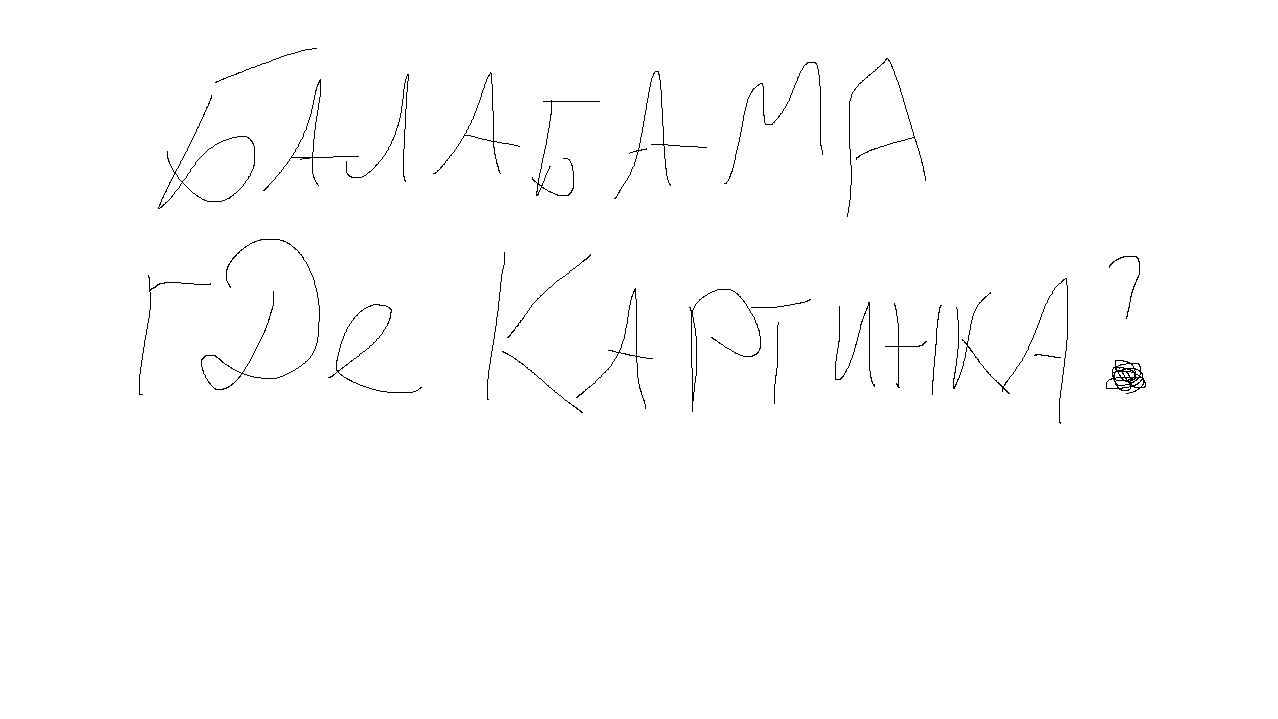 БАЛАБАМА
ГДе КАРТИНКА?